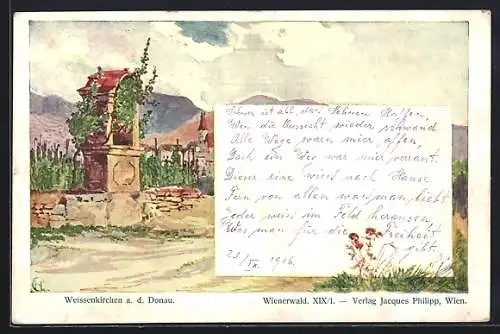 Schwer ist all das Sehnen Hoffen,
Wen die Aussicht wieder schwand
Alle Wege waren mir offen,
Doch ein Weg war mir verant.
Dieser eine wies nach Hause
Fern von allen was man liebt
oder weiss im Feld heraussen
Was man für die Freiheit
gibt
23/IX. 1916.
Weissenkirchen a. d. Donau.
Wienerwald. XIX/1. — Verlag Jacques Philipp, Wien.